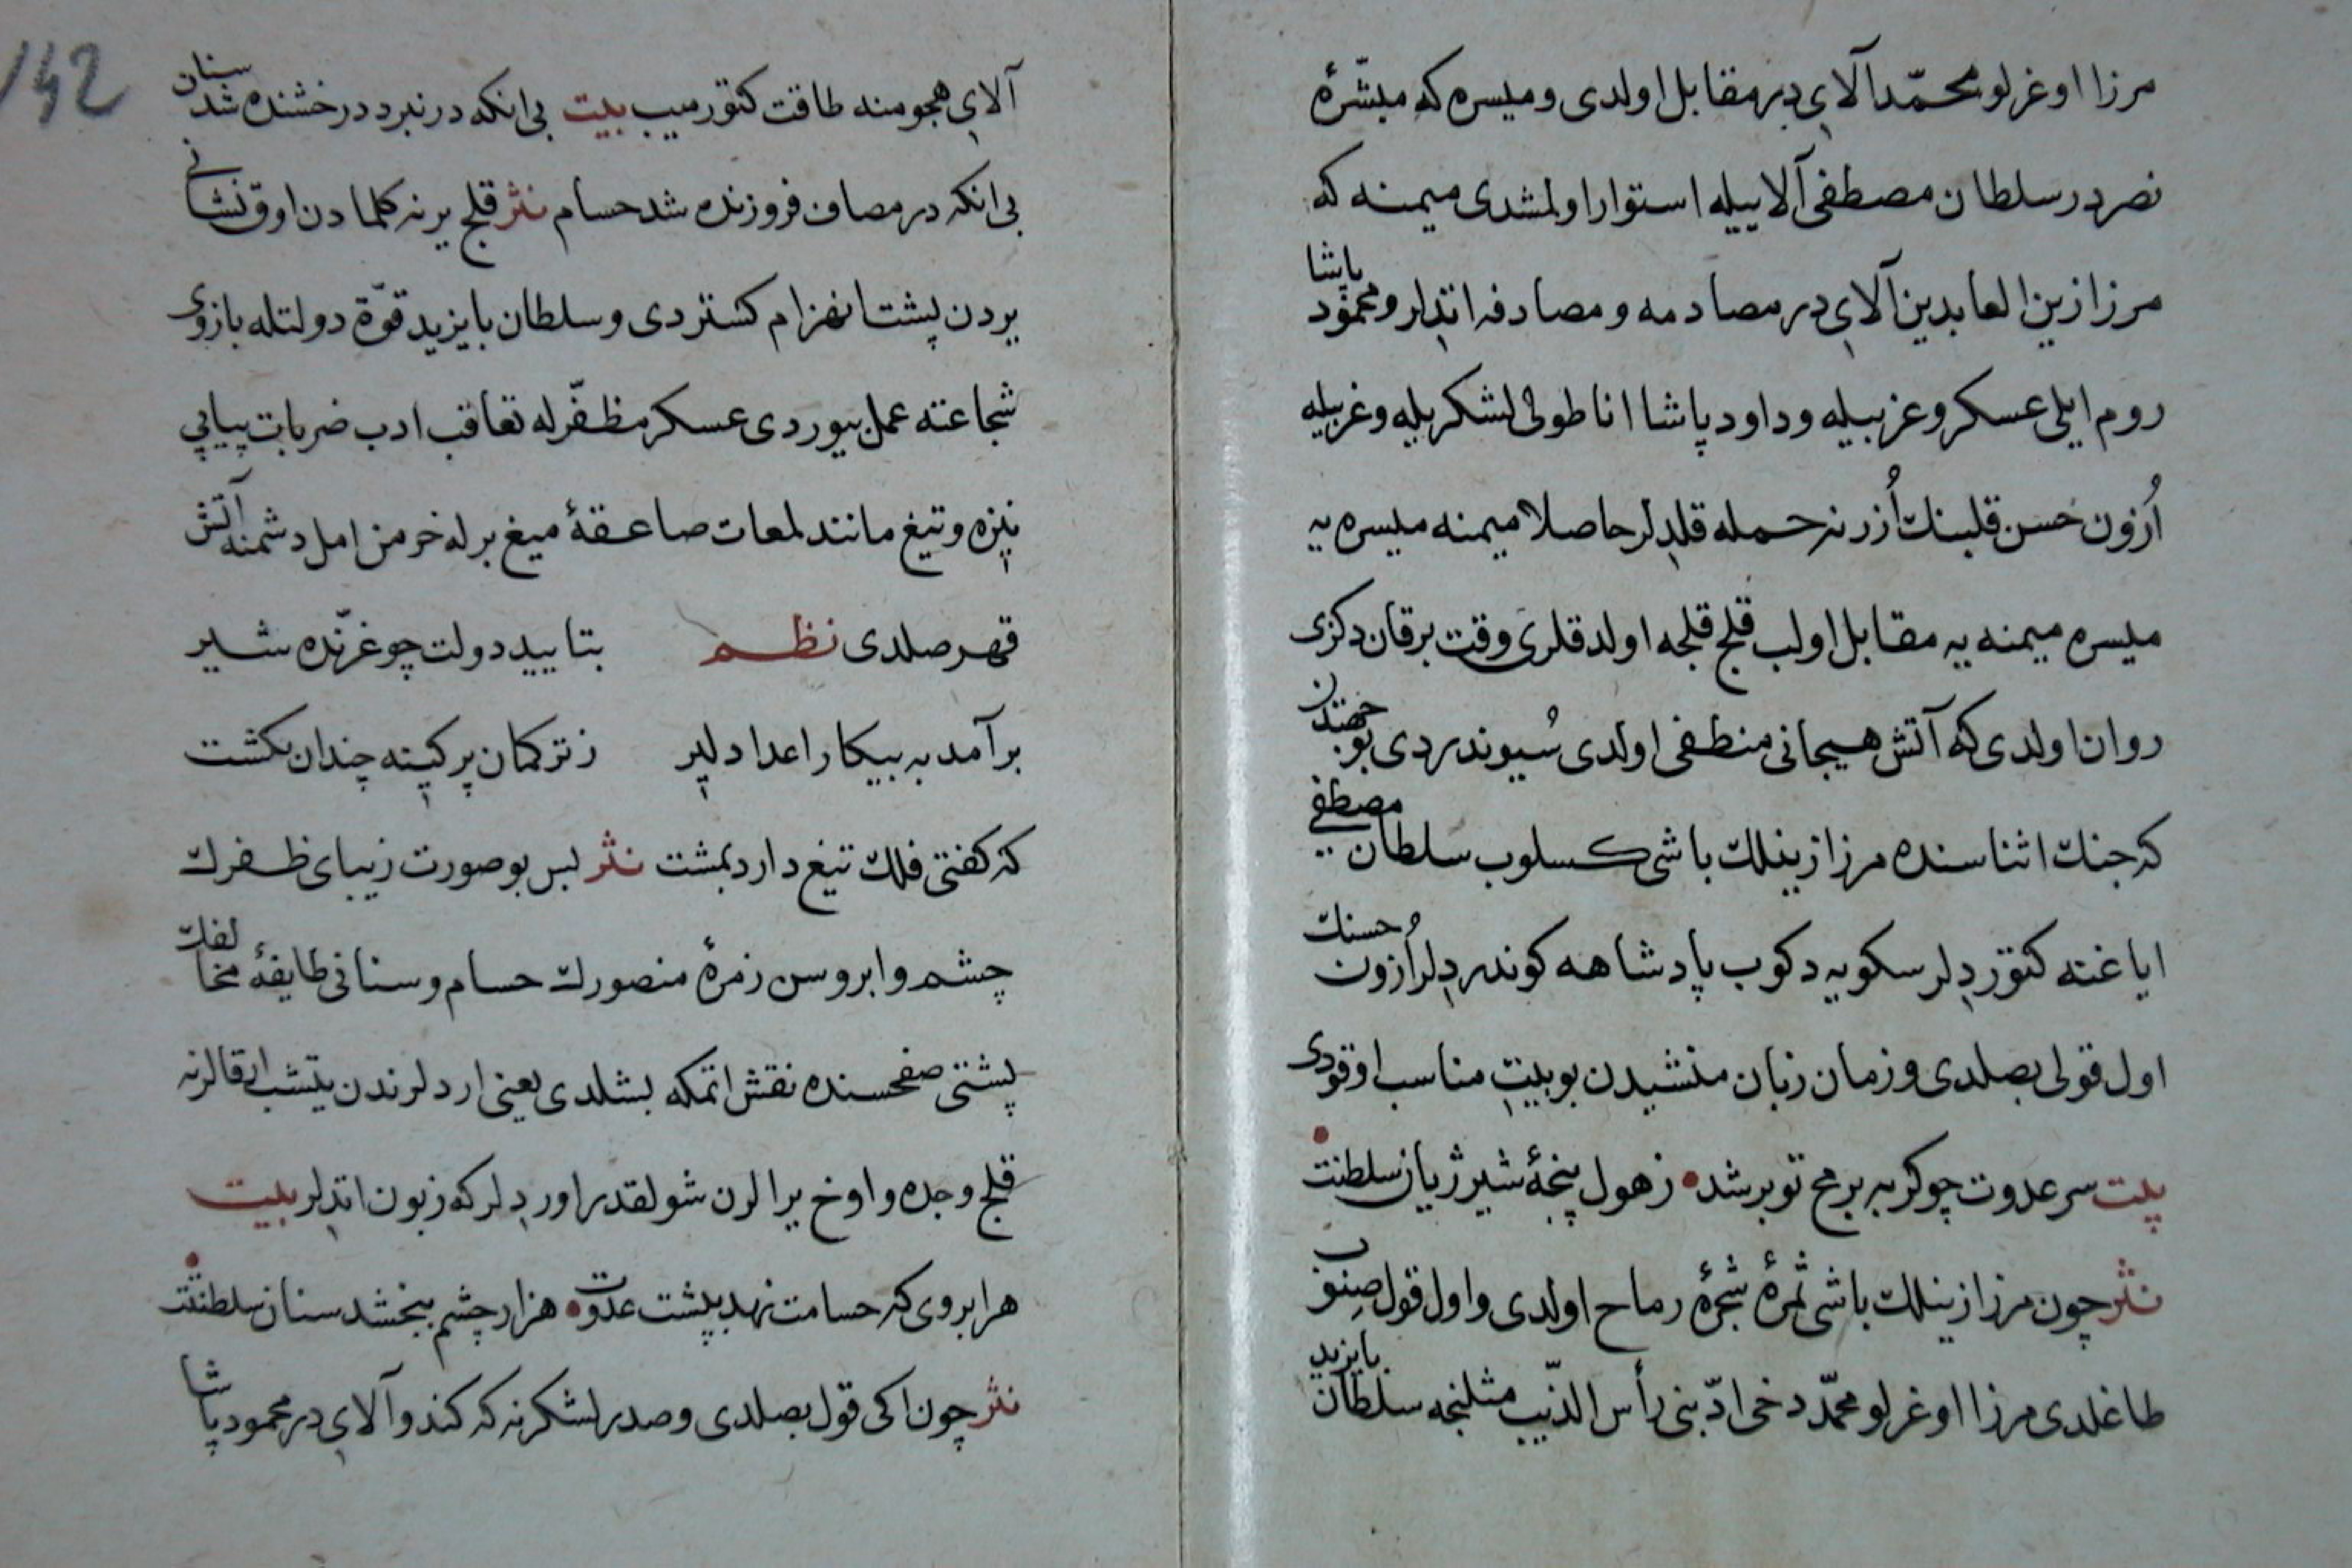 مرزا اوغرلو محمّد آلایدر مقابل اولدی و میسره که مبشّرهٔ
نصردر سلطان مصطفی آلاییله استوار اولمشدی میمنه که
مرزا زین العابدین آلایدر مصادمه و مصادفه اتدلر و محمود پاشا
روم ایلی عسکر و عزبیله و داود پاشا اناطولی لشکریله و عزبیله
اُزون حسن قلبنك اُزرنه حمله قلدلر حاصلا میمنه میسره یه
میسره میمنه یه مقابل اولب قلج قلجه اولدقلری وقت بر قان دکزی
روان اولدی که آتش هیجانی منطفی اولدی سُیوندردی بو جهتدن
که جنك اثناسنده مرزا زینلك باشی کسلوب سلطان مصطفی
ایاغنه کتوردلر سکویه دکوب پادشاهه کوندردلر اُزون حسنك
اول قولی بصلدی و زمان زبان منشیدن بو بیت مناسب اوقودی
بیت سر عدوت چو کربه برمح تو بر شد ز هول پنجهٔ شیر ژیان سلطنت
نثر چون مرزا زینلك باشی ثمرهٔ شجرهٔ رماح اولدی و اول قول صنوب
طاغلدی مرزا اوغرلو محمّد دخی ادّبنی رأس الذّیب مثلنجه سلطان بایزید
142
آلای هجومنه طاقت کتورمیب بیت بی انکه در نبرد درخشنده شد سنان
بی انکه در مصاف فروزنده شد حسام نثر قلج یرنه کلمادن اوق نشانی
یردن پشت انهزام کستردی و سلطان بایزید قوّة دولتله بازوی
شجاعته عمل بیوردی عسکر مظفّرله تعاقب ادب ضربات پیاپی
نیزه و تیغ مانند لمعات صاعقهٔ میغ برله خرمن امل دشمنه آتش
قهر صلدی نظم بتایید دولت چو غرّنده شیر
برآمد به پیکار اعدا دلیر ز ترکمان پر کینه چندان بکشت
که کفتی فلك تیغ دارد بمشت نثر بس بو صورت زیبای ظفرك
چشم و ابروسن زمرهٔ منصورك حسام و سنانی طایفهٔ مخالفك
پشتی صفحسنده نقش اتمکه بشلدی یعنی اردلرندن یتشب ارقالرنه
قلج و جده و اوخ یرالرن شولقدر اوردلر که زبون اتدلر بیت
هر ابروی که حسامت نهد بپشت عدوت هزار چشم ببخشد سنان سلطنتت
نثر چون اکی قول بصلدی و صدر لشکرنه که کندو آلایدر محمود پاشا